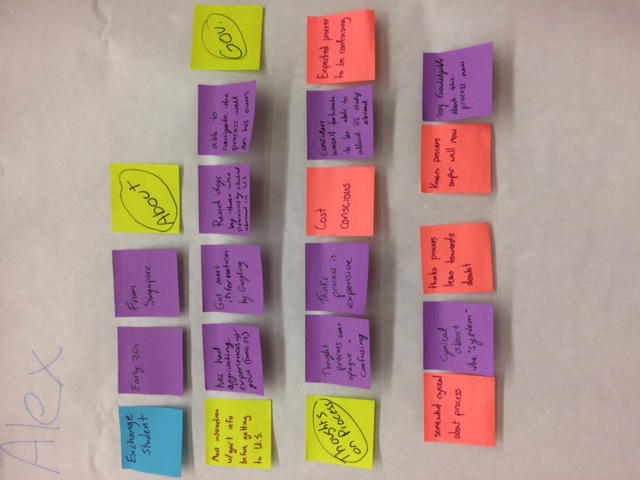 Alex
Exchange
Student
Early 20s
From
Singapore
About
Most interaction
w/gov't info
before getting
to U.S.
has had
aggrivating
experiences w/
gov't
Got most
information
by Googling
Read blogs
by those who
previously studied
abroad in US
able to
navigate the
process well
on his own
Gov.
Thoughts
on Process
Thought
process was
opaque +
confusing
Thinks
process is
expensive
Cost
Conscious
Considers
himself fortunate
to be able to
afford US study
abroad
Expected process
to be confusing
somewhat cynical
about process
Cynical
about
the "system"
thinks process
leans towards
doubt
Knows process
super well now
Very Knowledgable
about the
process now